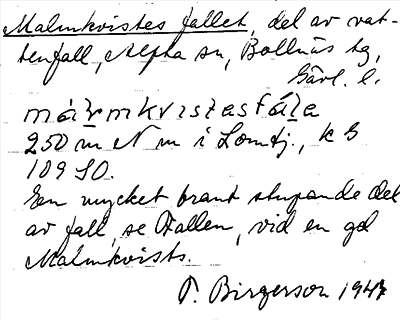 Malmkvistes fallet, del av vat-
tenfall, Alpha sn, Bollnäs tg,
Gävl. l.
250 m N m i Lomtj., k G
109 SO.
En mycket brant stupande del
av fall, se Fallen, vid en gd
Malmkvists.
T. Birgerson 1947